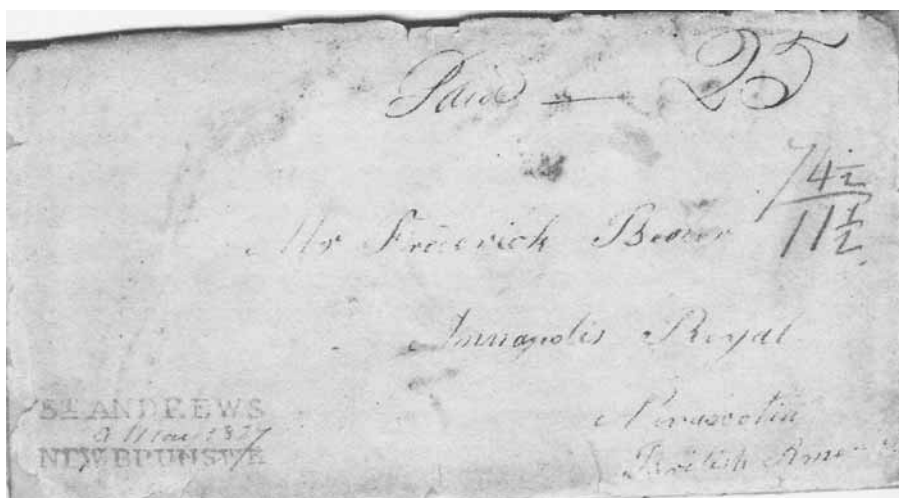 Paid — 25
7 4½
11½
Mr Frederick
Annapolis Royal
Novascotia
British Amer
ST ANDREWS
NEW BRUNSWK